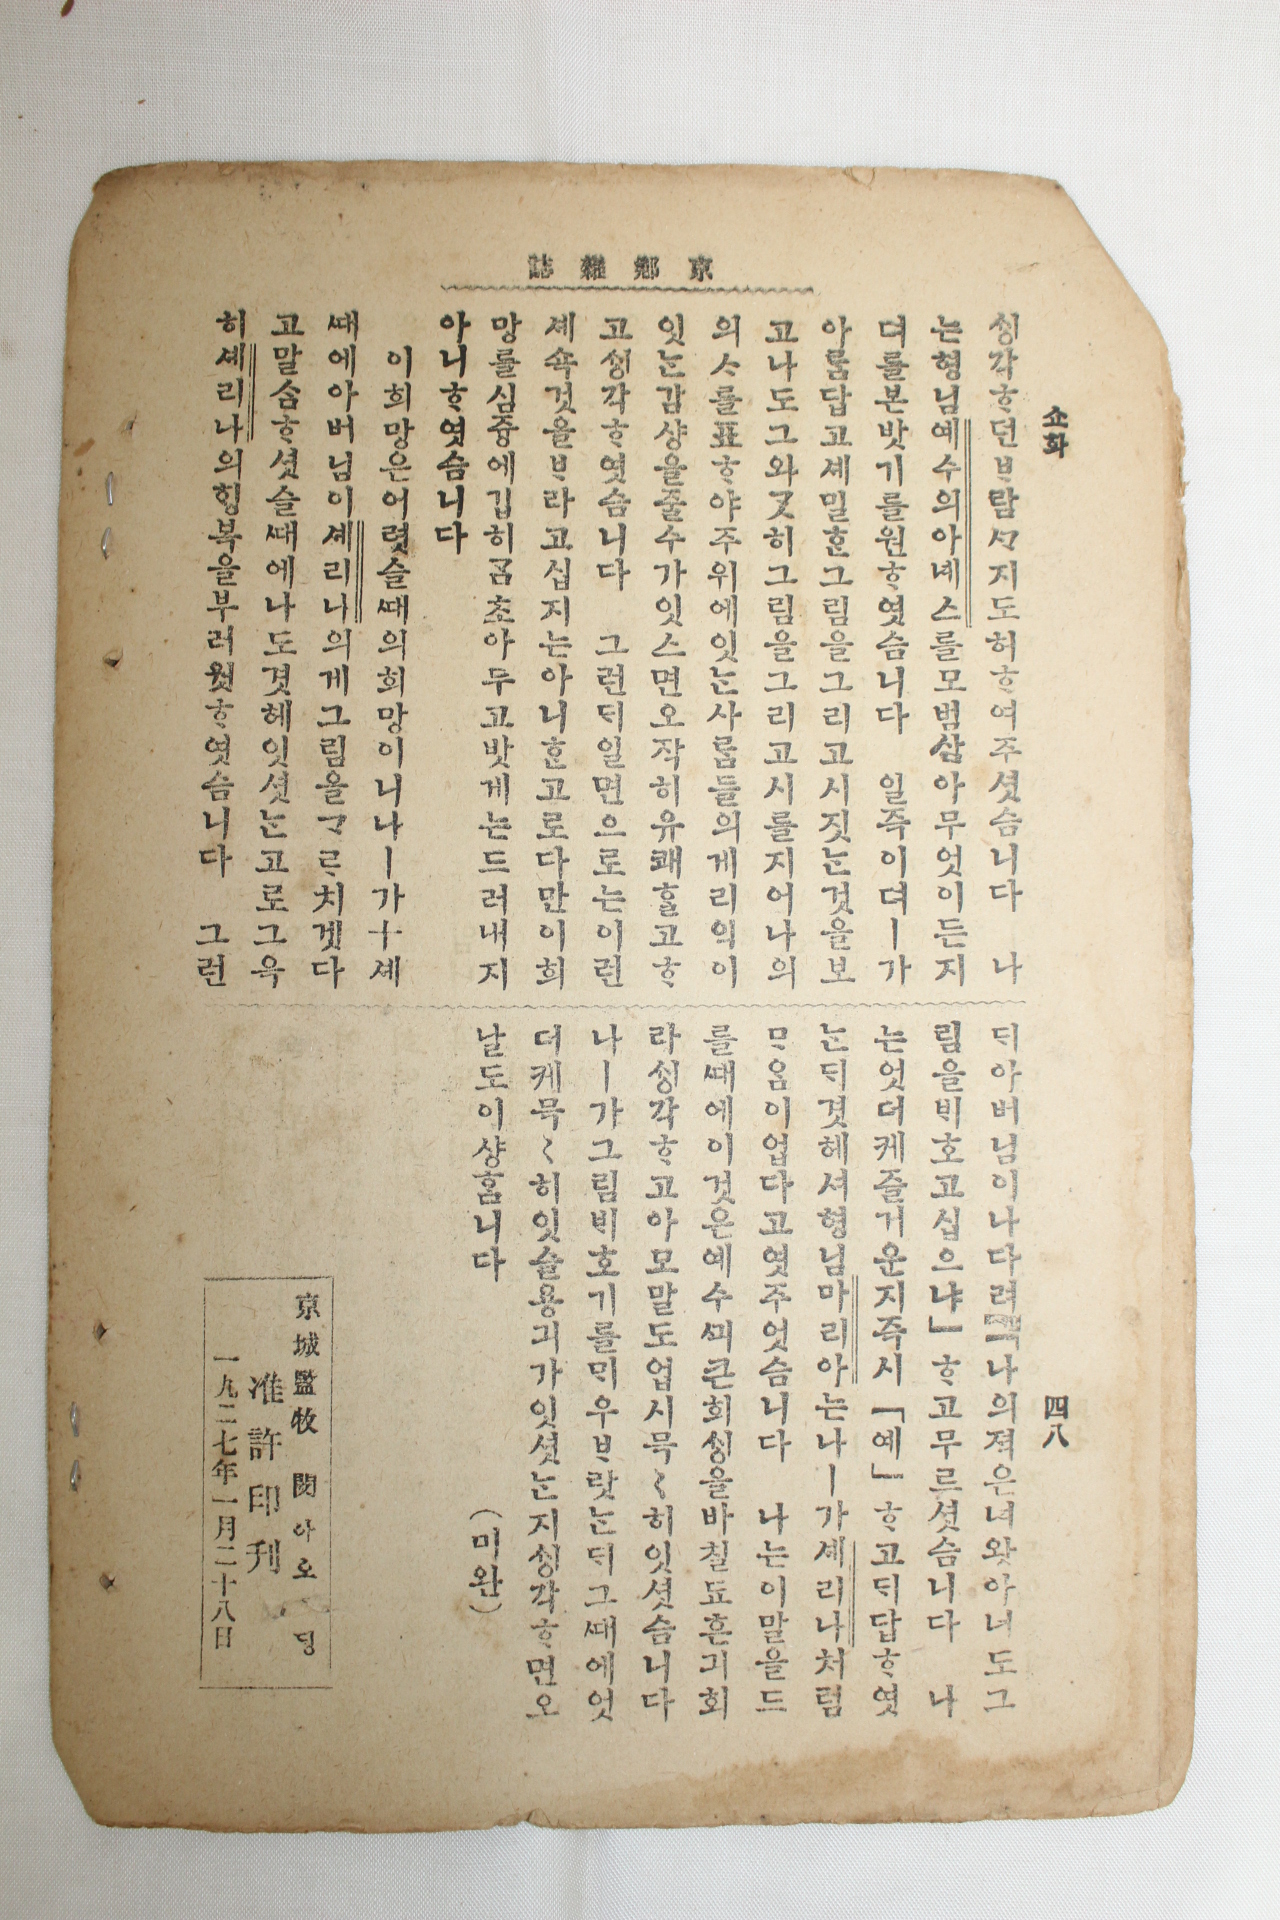 京鄕雜誌
쇼화
四八
싱각ᄒᆞ던ᄇᆞ탐ㅅ지도허ᄒᆞ여주셧슴니다 나
는형님예수의아녜스를모범삼아무엇이든지
뎌를본밧기를원ᄒᆞ엿슴니다 일즉이뎌ㅣ가
아ᄅᆞᆷ답고셰밀ᄒᆞᆫ그림을그리고시짓ᄂᆞᆫ것을보
고나도그와ᄀᆞᆺ히그림을그리고시를지어나의
의ᄉᆞ를표ᄒᆞ야주위에잇ᄂᆞᆫ사ᄅᆞᆷ들의게리익이
잇ᄂᆞᆫ감샹을줄수가잇스면오작히유쾌ᄒᆞᆯ고ᄒᆞ
고ᄉᆡᆼ각ᄒᆞ엿슴니다 그런ᄃᆡ일면으로는이런
셰쇽것을ᄇᆞ라고십지는아니ᄒᆞᆫ고로다만이희
망를심즁에깁히곰초아두고밧게는드러내지
아니ᄒᆞ엿슴니다
이희망은어렷슬때의희망이니나ㅣ가十셰
ᄯᅢ에아버님이셰리나의게그림을ᄀᆞᄅᆞ치겟다
고말ᄉᆞᆷᄒᆞ셧슬ᄯᅢ에나도겻헤잇셧ᄂᆞᆫ고로그윽
히셰리나의ᄒᆡᆼ복을부러웟ᄒᆞ엿슴니다 그런
ᄃᆡ아버님이나다려「나의젹은녀왕아너도그
림을ᄇᆡ호고십으냐」ᄒᆞ고무르셧슴니다 나
는엇더케즐거운지즉시「예」ᄒᆞ고ᄃᆡ답ᄒᆞ엿
ᄂᆞᆫᄃᆡ겻헤셔형님마리아는나ㅣ가셰리나쳐럼
ᄆᆞᄋᆞᆷ이업다고엿주엇슴니다 나는이말을드
를ᄯᅢ에이것은예수ᄭᅴ큰희ᄉᆡᆼ을바칠됴흔긔회
라ᄉᆡᆼ각ᄒᆞ고아모말도업시믁〻히잇셧슴니다
나ㅣ가그림ᄇᆡ호기를ᄆᆡ우ᄇᆞ랏ᄂᆞᆫᄃᆡ그ᄯᅢ에엇
더케믁〻히잇슬용긔가잇셧ᄂᆞᆫ지ᄉᆡᆼ각ᄒᆞ면오
날도이샹ᄒᆞᆷ니다
(미완)
京城監牧 閔아오 딩
准許印刊
一九二七年一月二十八日